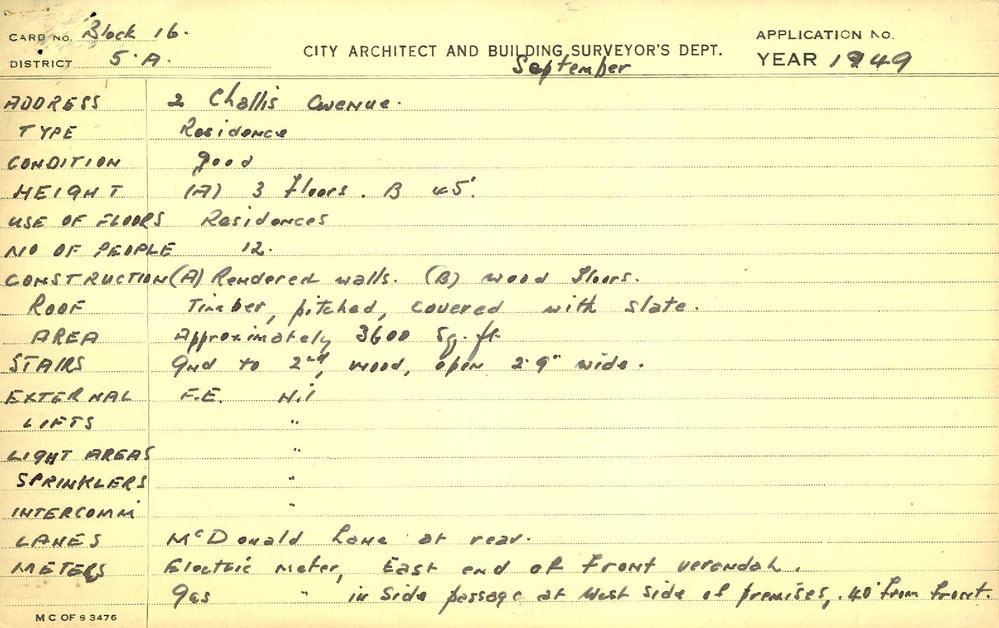 CARD NO. Block 16.
DISTRICT 5.A.
CITY ARCHITECT AND BUILDING SURVEYOR'S DEPT.
September
APPLICATION NO.
YEAR 1949
ADDRESS 2 Challis Avenue.
TYPE Residence
CONDITION good
HEIGHT (A) 3 floors. B 45'.
USE OF FLOORS Residences
NO OF PEOPLE 12.
CONSTRUCTION (A) Rendered walls. (B) wood floors.
ROOF Timber, pitched, covered with slate.
AREA Approximately 3600 Sq. ft.
STAIRS Gnd to 2nd, wood, open 2'9" wide.
EXTERNAL F.E. Nil
LIFTS "
LIGHT AREAS "
SPRINKLERS "
INTERCOMM "
LANES McDonald Lane at rear.
METERS Electric meter, East end of Front verendah.
Gas " in side passage at West side of premises, 40' from front.
M C OF S 3476